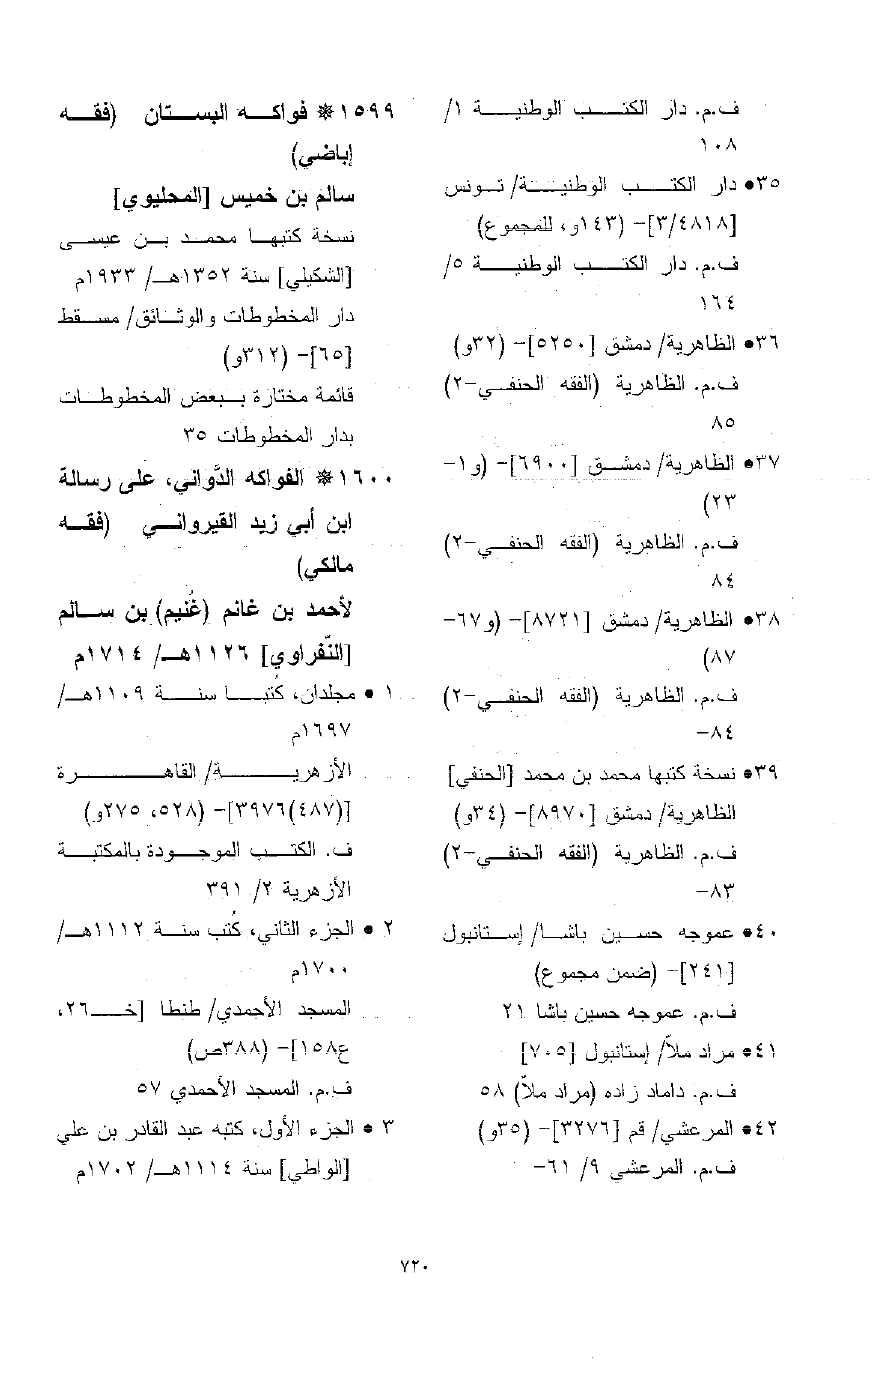 ف.م. دار الكتب الوطنية ١/
١٠٨
٣٥• دار الكتب الوطنية/ تونس
[٣/٤٨١٨]- (١٤٣و، للمجموع)
ف.م. دار الكتب الوطنية ٥/
١٦٤
٣٦• الظاهرية/ دمشق [٥٢٥٠]- (٣٢و)
ف.م. الظاهرية (الفقه الحنفي-٢)
٨٥
٣٧• الظاهرية/ دمشق [٦٩٠٠]- (و١-
٢٣)
ف.م. الظاهرية (الفقه الحنفي-٢)
٨٤
٣٨• الظاهرية/ دمشق [٨٧٢١]- (و٦٧-
٨٧)
ف.م. الظاهرية (الفقه الحنفي-٢)
٨٤-
٣٩• نسخة كتبها محمد بن محمد [الحنفي]
الظاهرية/ دمشق [٨٩٧٠]- (٣٤و)
ف.م. الظاهرية (الفقه الحنفي-٢)
٨٣-
٤٠• عموجه حسين باشا/ إستانبول
[٢٤١]- (ضمن مجموع)
ف.م. عموجه حسين باشا ٢١
٤١• مراد ملاّ/ إستانبول [٧٠٥]
ف.م. داماد زاده (مراد ملاّ) ٥٨
٤٢• المرعشي/ قم [٣٢٧٦]- (٣٥و)
ف.م. المرعشي ٩/ ٦١-
١٥٩٩* فواكه البستان (فقه
إباضي)
سالم بن خميس [المحليوي]
نسخة كتبها محمد بن عيسى
[الشكيلي] سنة ١٣٥٢هـ/ ١٩٣٣م
دار المخطوطات والوثائق/ مسقط
[٦٥]- (٣١٢و)
قائمة مختارة ببعض المخطوطات
بدار المخطوطات ٣٥
١٦٠٠* الفواكه الدَّواني، على رسالة
ابن أبي زيد القيرواني (فقه
مالكي)
لأحمد بن غانم (غُنيم) بن سالم
[النّفراوي] ١١٢٦هـ/ ١٧١٤م
١ • مجلدان، كُتبا سنة ١١٠٩هـ/
١٦٩٧م
الأزهرية/ القاهرة
[(٤٨٧)٣٩٧٦]- (٥٢٨، ٢٧٥و)
ف. الكتب الموجودة بالمكتبة
الأزهرية ٢/ ٣٩١
٢ • الجزء الثاني، كُتب سنة ١١١٢هـ/
١٧٠٠م
المسجد الأحمدي/ طنطا [خ٢٦،
ع١٥٨]- (٣٨٨ص)
ف.م. المسجد الأحمدي ٥٧
٣ • الجزء الأول، كتبه عبد القادر بن علي
[الواطي] سنة ١١١٤هـ/ ١٧٠٢م
٧٢٠